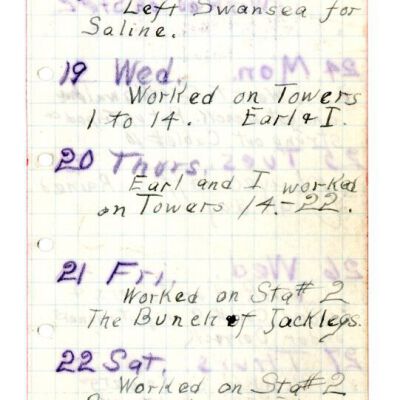 Left Swansea for
Saline.
19 Wed.
Worked on Towers
1 to 14. Earl & I.
20 Thurs.
Earl and I worked
on Towers 14.-22.
21 Fri.
Worked on Sta# 2
The Bunch of Jacklegs.
22 Sat.
Worked on Sta# 2